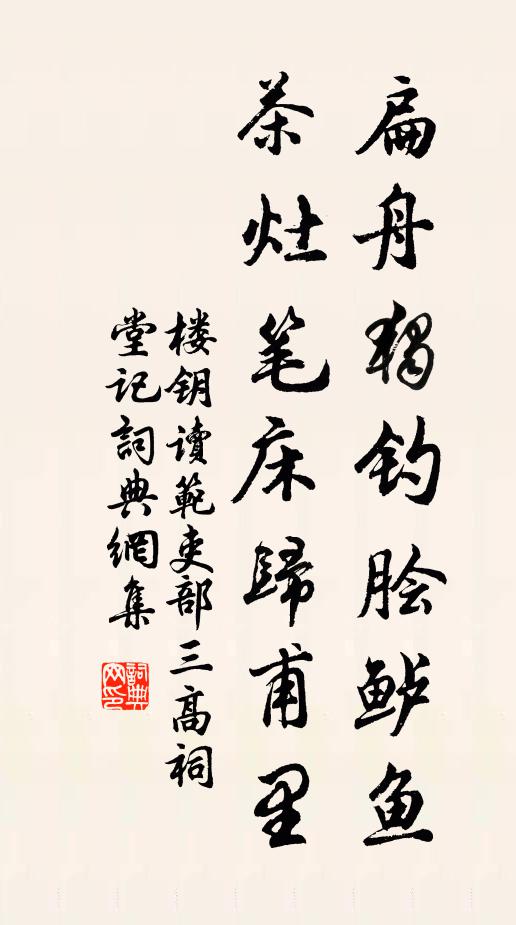 扁舟獨钓脍鲈鱼
茶灶笔床歸甫里
楼钥讀範吏部三高祠
堂記詞典網集
詞典网印